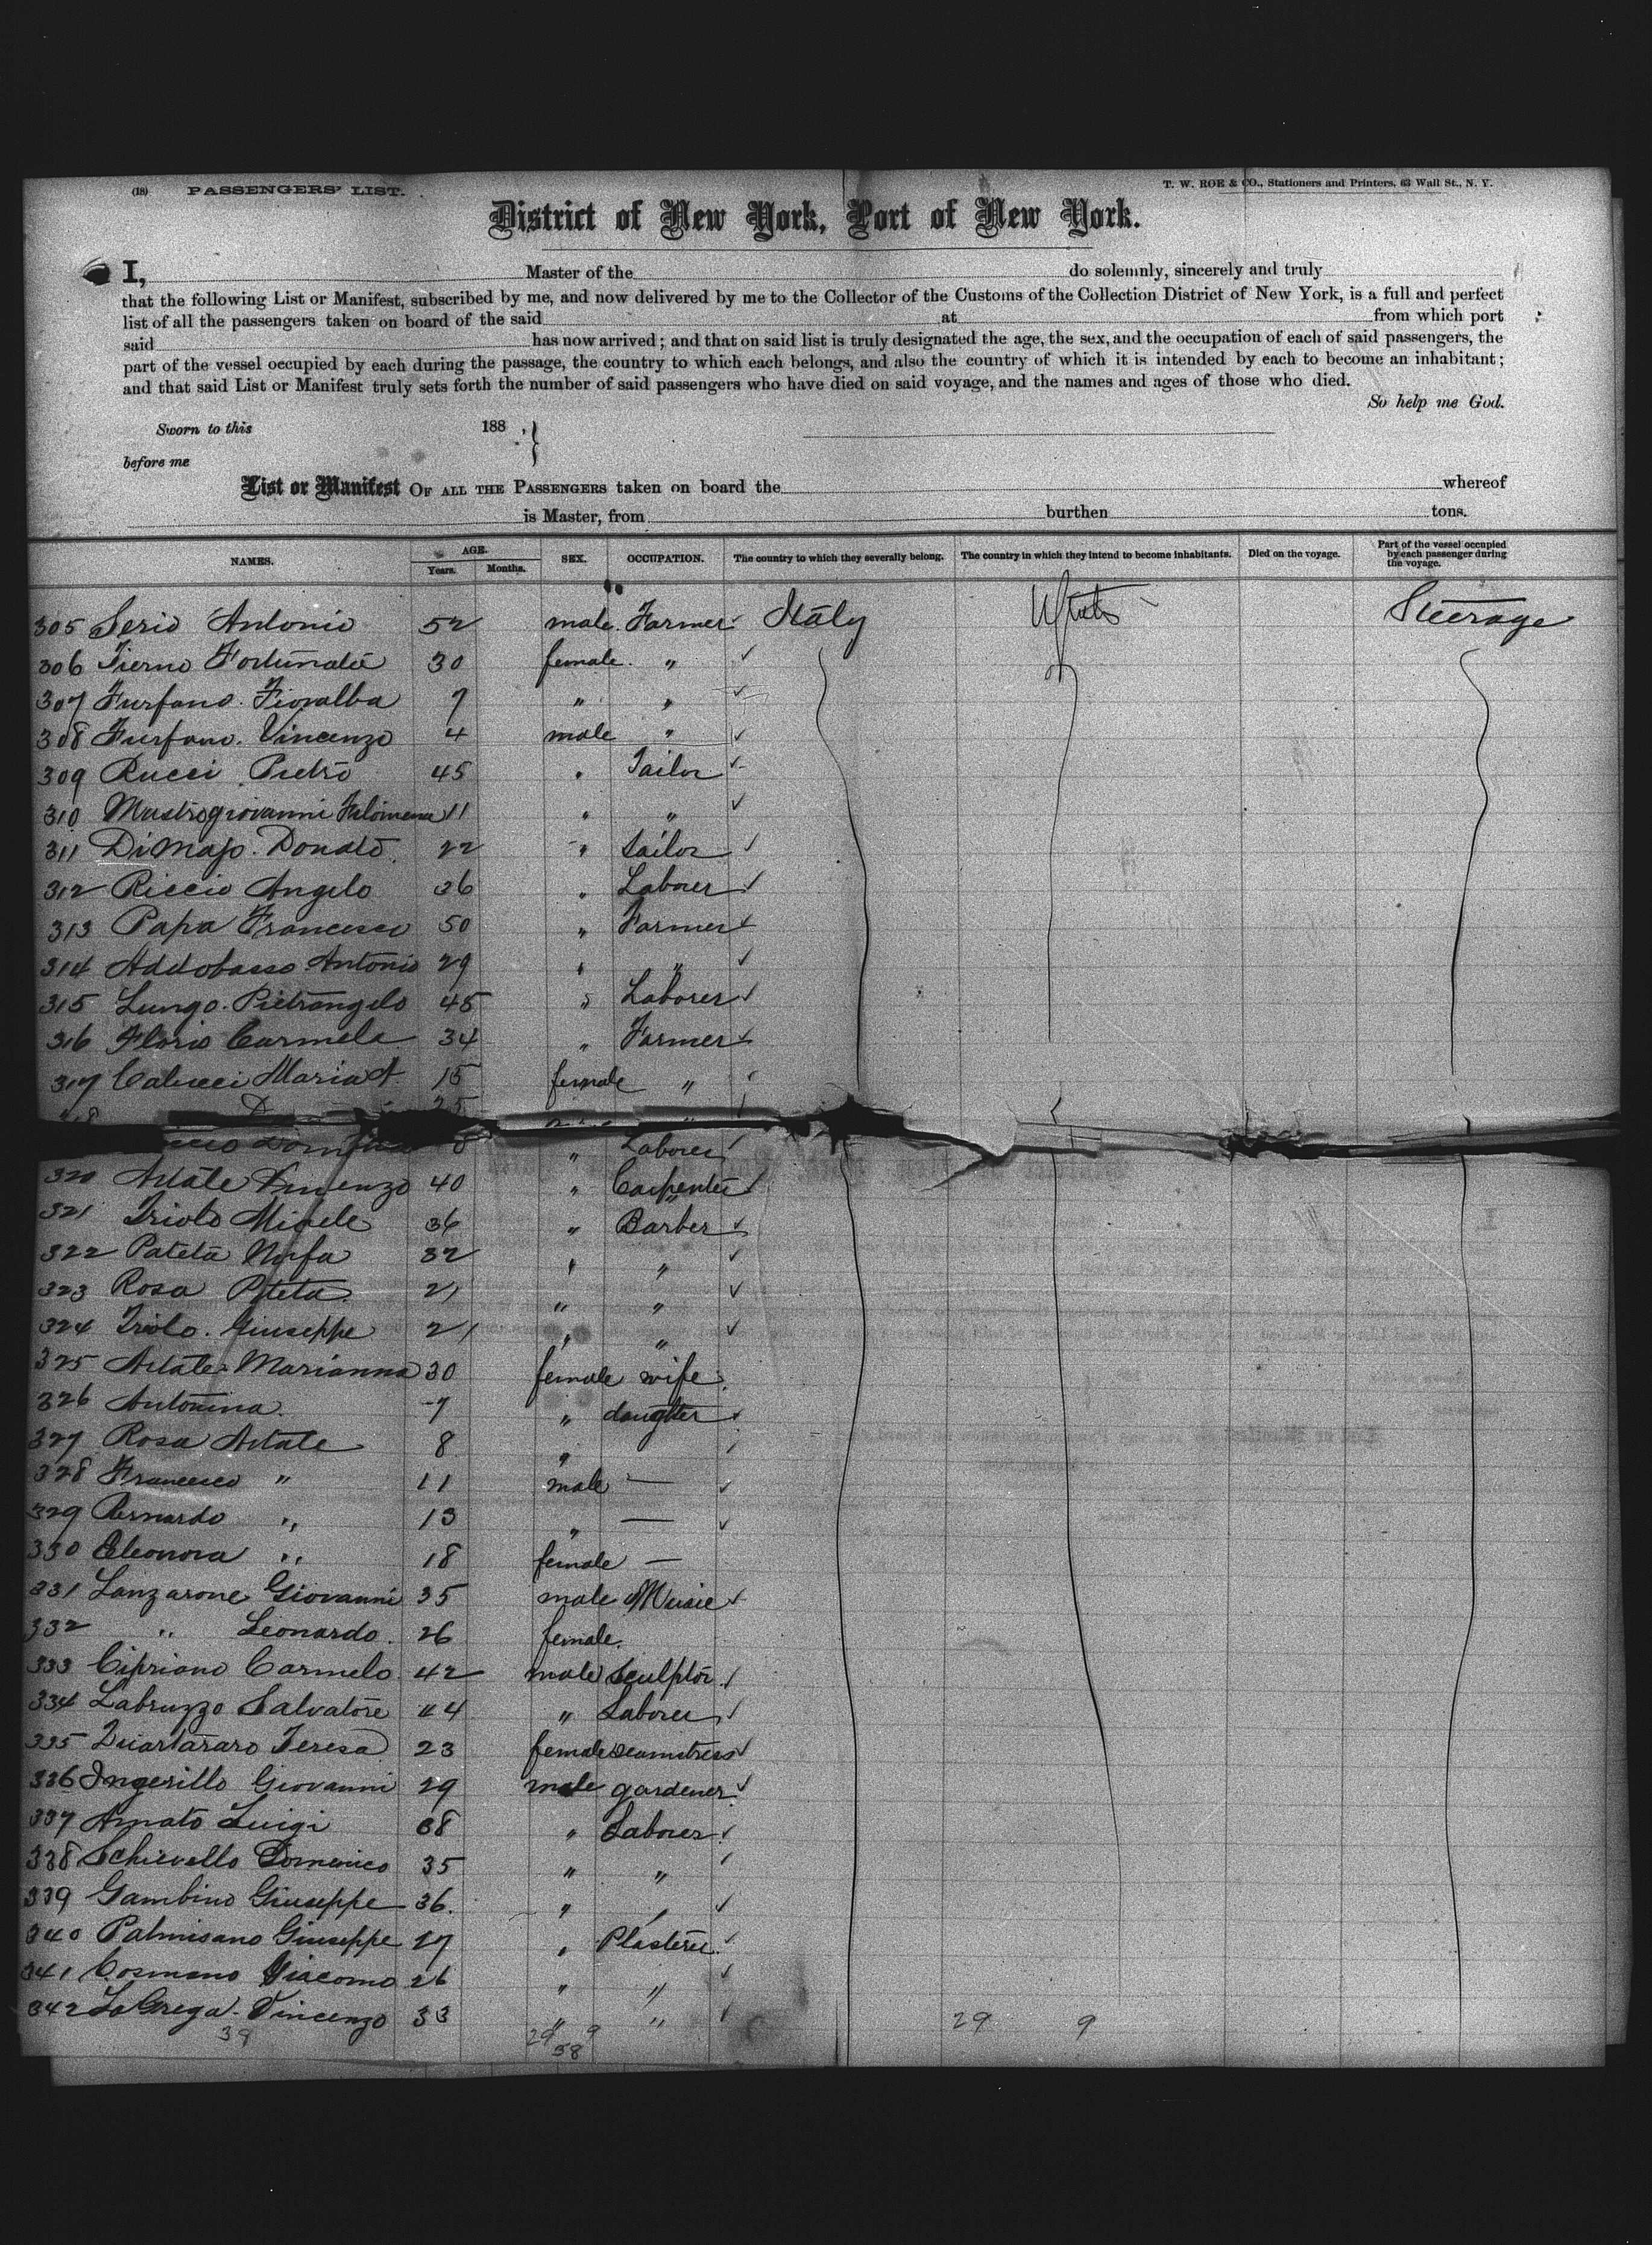 (18) PASSENGERS' LIST.
T. W. ROE & CO., Stationers and Printers, 63 Wall St., N. Y.
District of New York, Port of New York.
I, Master of the do solemnly, sincerely and truly
that the following List or Manifest, subscribed by me, and now delivered by me to the Collector of the Customs of the Collection District of New York, is a full and perfect
list of all the passengers taken on board of the said at from which port
said has now arrived; and that on said list is truly designated the age, the sex, and the occupation of each of said passengers, the
part of the vessel occupied by each during the passage, the country to which each belongs, and also the country of which it is intended by each to become an inhabitant;
and that said List or Manifest truly sets forth the number of said passengers who have died on said voyage, and the names and ages of those who died.
So help me God.
Sworn to this 188 ,
before me
List or Manifest OF ALL THE PASSENGERS taken on board the whereof
is Master, from burthen tons.
NAMES. AGE. Years. Months. SEX. OCCUPATION. The country to which they severally belong. The country in which they intend to become inhabitants. Died on the voyage. Part of the vessel occupied by each passenger during the voyage.
305 Serio Antonio 52 male Farmer Italy Steerage
306 Tierno Fortunata 30 female "
307 Furfano Fioralba 7 " "
308 Furfano Vincenzo 4 male "
309 Rucci Pietro 45 " Tailor
310 Mastrogiovanni Filomena 11 " "
311 DiMajo Donato 22 " Sailor
312 Riccio Angelo 36 " Laborer
313 Papa Francesco 50 " Farmer
314 Addobasso Antonio 29 " "
315 Lungo Pietrangelo 45 " Laborer
316 Florio Carmela 34 " Farmer
317 Calucci Maria A. 15 female "
25
" Laborer
320 Artale Vincenzo 40 " Carpenter
321 Triolo Michele 36 " Barber
322 Pateta Ninfa 32 " "
323 Rosa Pateta 21 " "
324 Triolo Giuseppe 21 " "
325 Artale Marianna 30 female wife
326 Antonina 7 " daughter
327 Rosa Artale 8 "
328 Francesco " 11 male —
329 Bernardo " 13 " —
330 Eleonora " 18 female —
331 Lanzarone Giovanni 35 male Music
332 " Leonardo 26 female
333 Cipriano Carmelo 42 male Sculptor
334 Labruzzo Salvatore 44 " Laborer
335 Quartararo Teresa 23 female seamstress
336 Ingerillo Giovanni 29 male gardener
337 Amato Luigi 38 " Laborer
338 Schirvello Domenico 35 " "
339 Gambino Giuseppe 36 " "
340 Palmisano Giuseppe 27 " Plasterer
341 Cosmano Giacomo 26 " "
342 LaGrega Vincenzo 33 " "
29 9 29 9
38